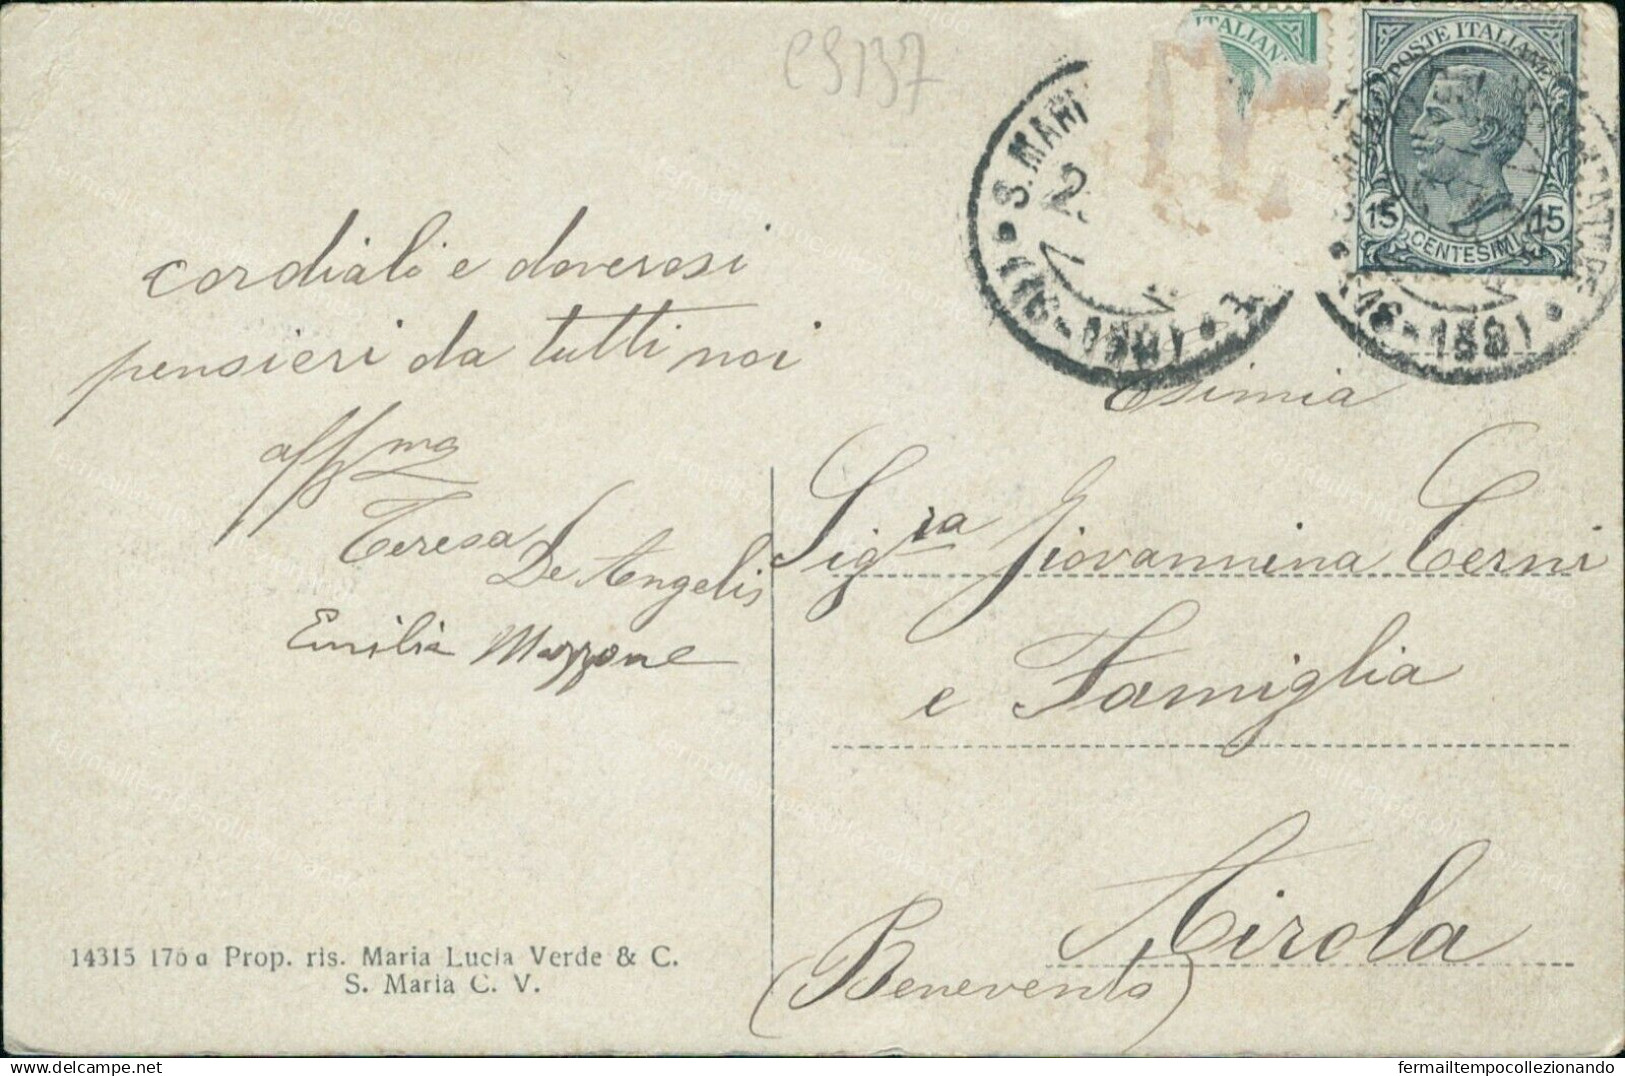 c9137
ITALIAN
POSTE ITALIANE
15 15
CENTESIMI
S. MARI
cordiali e doverosi
pensieri da tutti noi
affma
Teresa De Angelis
Emilia Mazzone
Sigra Giovannina Cerni
e Famiglia
Airola
(Benevento)
14315 176 a Prop. ris. Maria Lucia Verde & C.
S. Maria C. V.
fermailtempocollezionando